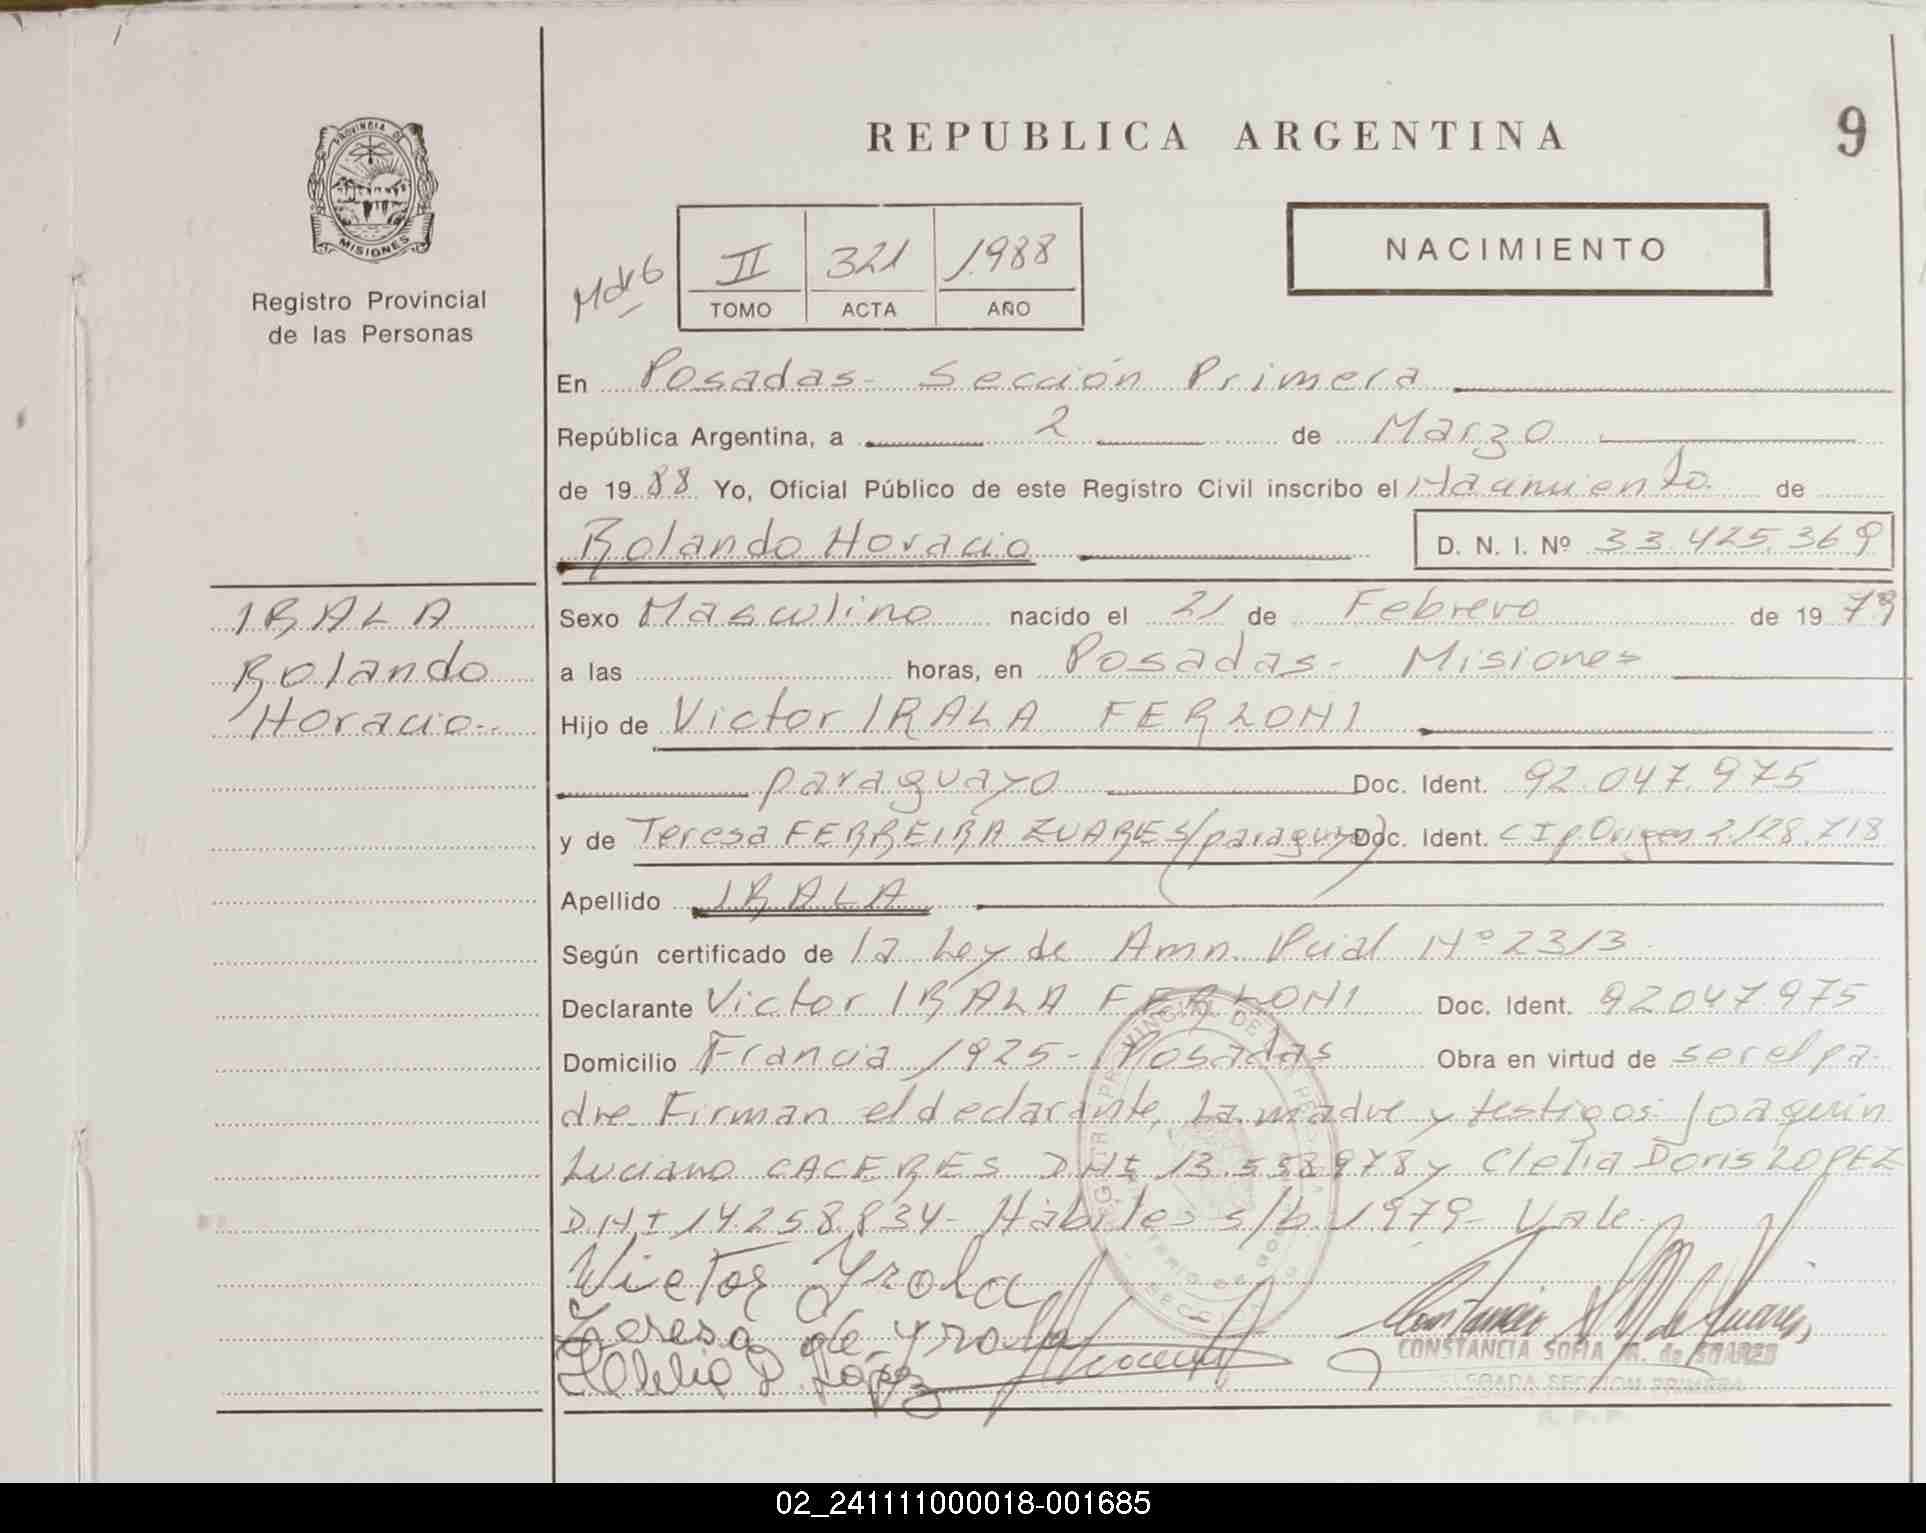 REPUBLICA ARGENTINA
9
PROVINCIA DE
MISIONES
Registro Provincial
de las Personas
II 321 1988
TOMO ACTA AÑO
NACIMIENTO
En Posadas- Sección Primera
República Argentina, a 2 de Marzo
de 1988 Yo, Oficial Público de este Registro Civil inscribo el Nacimiento de
Rolando Horacio D. N. I. Nº 33.425.369
IRALA
Rolando
Horacio-
Sexo Masculino nacido el 21 de Febrero de 1979
a las horas, en Posadas- Misiones
Hijo de Victor IRALA FERLONI
paraguayo Doc. Ident. 92.047.975
y de Teresa FERREIRA ZUARES (paraguaya) Doc. Ident. C I p. Origen 2.128.718
Apellido IRALA
Según certificado de la Ley de Amn. Pcial Nº 2313.
Declarante Victor IRALA FERLONI Doc. Ident. 92.047.975
Domicilio Francia 1925- Posadas Obra en virtud de ser el pa-
dre Firman el declarante, la madre y testigos: Joaquin
Luciano CACERES DNI 13.558.978 y Clelia Doris LOPEZ
DNI 14.258.834- Hábiles s/b 1979- Vale.
Victor Yrola
Teresa de Yrola
Clelia D. López
CONSTANCIA SOFIA M. de SUAREZ
SECCION PRIMERA
R. P. P.
02_241111000018-001685